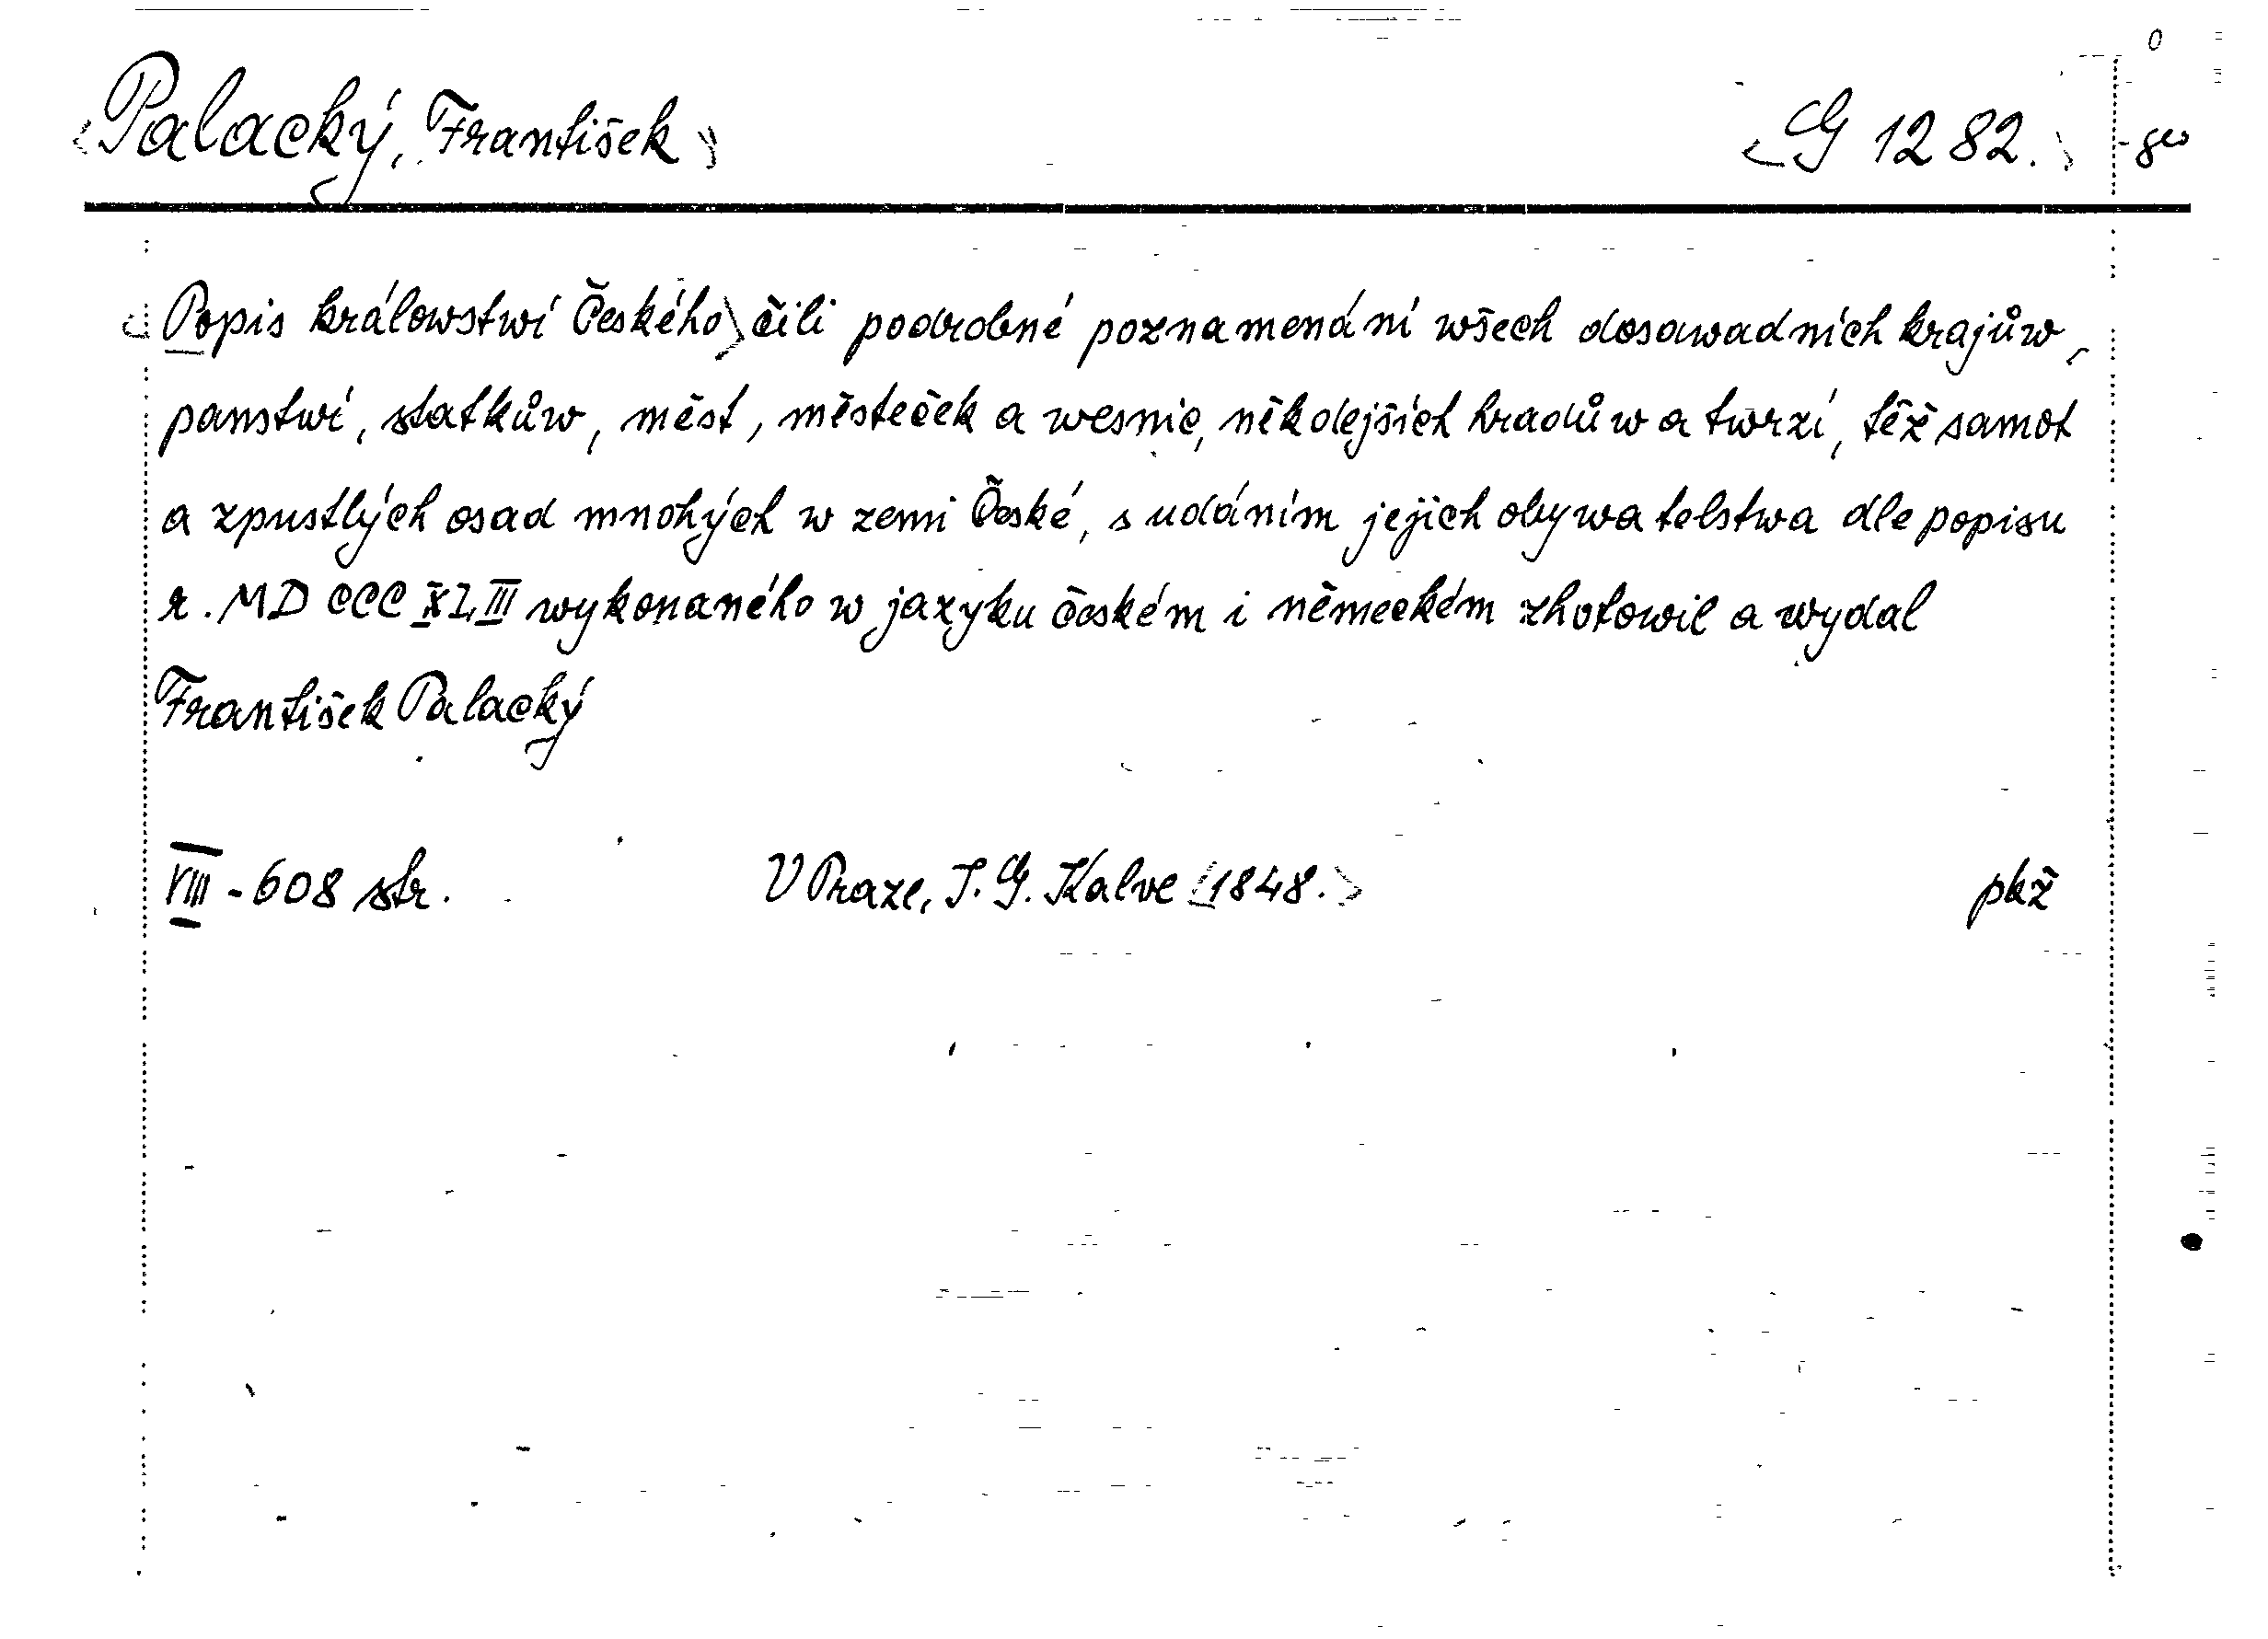 Palacký, František G 1282. geo
Popis králowstwí Českého čili podrobné poznamenání wšech dosawadních krajůw,
panstwí, statkůw, měst, městeček a wesnic, někdejších hradůw a twrzí, též samot
a zpustlých osad mnohých w zemi České, s udáním jejich obywatelstwa dle popisu
r. MDCCCXLIII wykonaného w jazyku českém i německém zhotowil a wydal
František Palacký
VIII - 608 str. V Praze, J. G. Kalve 1848. pkž